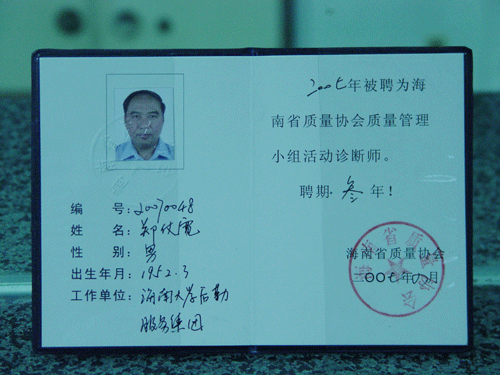 编 号:20070048
姓 名:郑仗
性 别:男
出生年月:1952.3
工作单位:海南大学后勤
服务集团
二〇〇七年被聘为海
南省质量协会质量管理
小组活动诊断师。
聘期叁年!
海南省质量协会
二〇〇七年六月